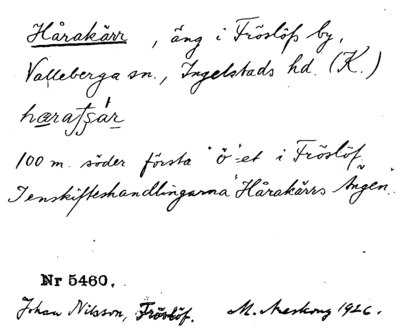 Hårakärr, äng i Fröslöfs by,
Valleberga sn., Ingelstads hd. (K.)
100 m. söder första "ö"-et i Fröslöf.
I enskifteshandlingarna "Hårakärrs Ängen".
Nr 5460.
Johan Nilsson, Fröslöf. M. Areskoug 1926.